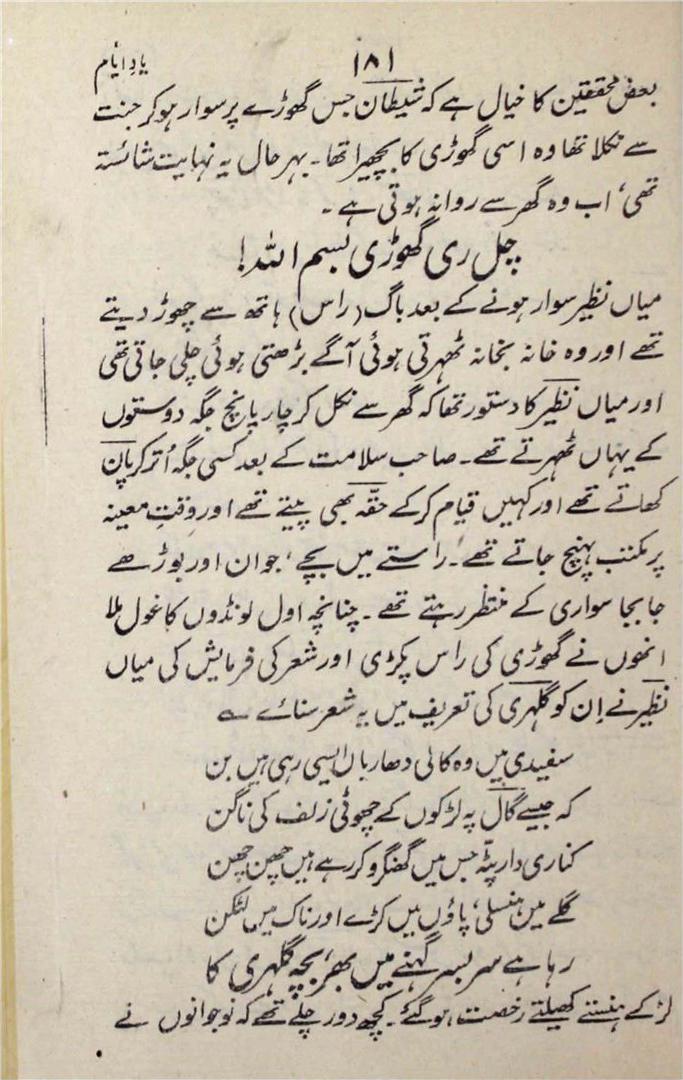 ۱۸۱
یادِ ایّام
بعض محققین کا خیال ہے کہ شیطان جس گھوڑے پر سوار ہو کر جنت
سے نکلا تھا وہ اسی گھوڑی کا بچھیرا تھا۔ بہر حال یہ نہایت شائستہ
تھی، اب وہ گھر سے روانہ ہوتی ہے۔
چل ری گھوڑی بسم اللہ!
میاں نظیر سوار ہونے کے بعد باگ (راس) ہاتھ سے چھوڑ دیتے
تھے اور وہ خانہ بخانہ ٹھہرتی ہوئی آگے بڑھتی ہوئی چلی جاتی تھی
اور میاں نظیر کا دستور تھا کہ گھر سے نکل کر چار پانچ جگہ دوستوں
کے یہاں ٹھہرتے تھے۔ صاحب سلامت کے بعد کسی جگہ اُتر کر پان
کھاتے تھے اور کہیں قیام کرکے حقّہ بھی پیتے تھے اور وقتِ معینہ
پر مکتب پہنچ جاتے تھے۔ راستے میں بچے، جوان اور بوڑھے
جا بجا سواری کے منتظر رہتے تھے۔ چنانچہ اول لونڈوں کا غول ملا
انھوں نے گھوڑی کی راس پکڑی اور شعر کی فرمایش کی میاں
نظیر نے اِن کو گلہری کی تعریف میں یہ شعر سنائے ؎
سفیدی میں وہ کالی دھاریاں ایسی رہی ہیں بن
کہ جیسے گال پہ لڑکوں کے چھوٹی زلف کی ناگن
کناری دار پٹّہ جس میں گھنگرو کر رہے ہیں چھن چھن
گلے میں ہنسلی، پاؤں میں کڑے اور ناک میں لٹکن
رہا ہے سر بسر گہنے میں بھر، بچہ گلہری کا
لڑکے ہنستے کھیلتے رخصت ہو گئے۔ کچھ دور چلے تھے کہ نوجوانوں نے